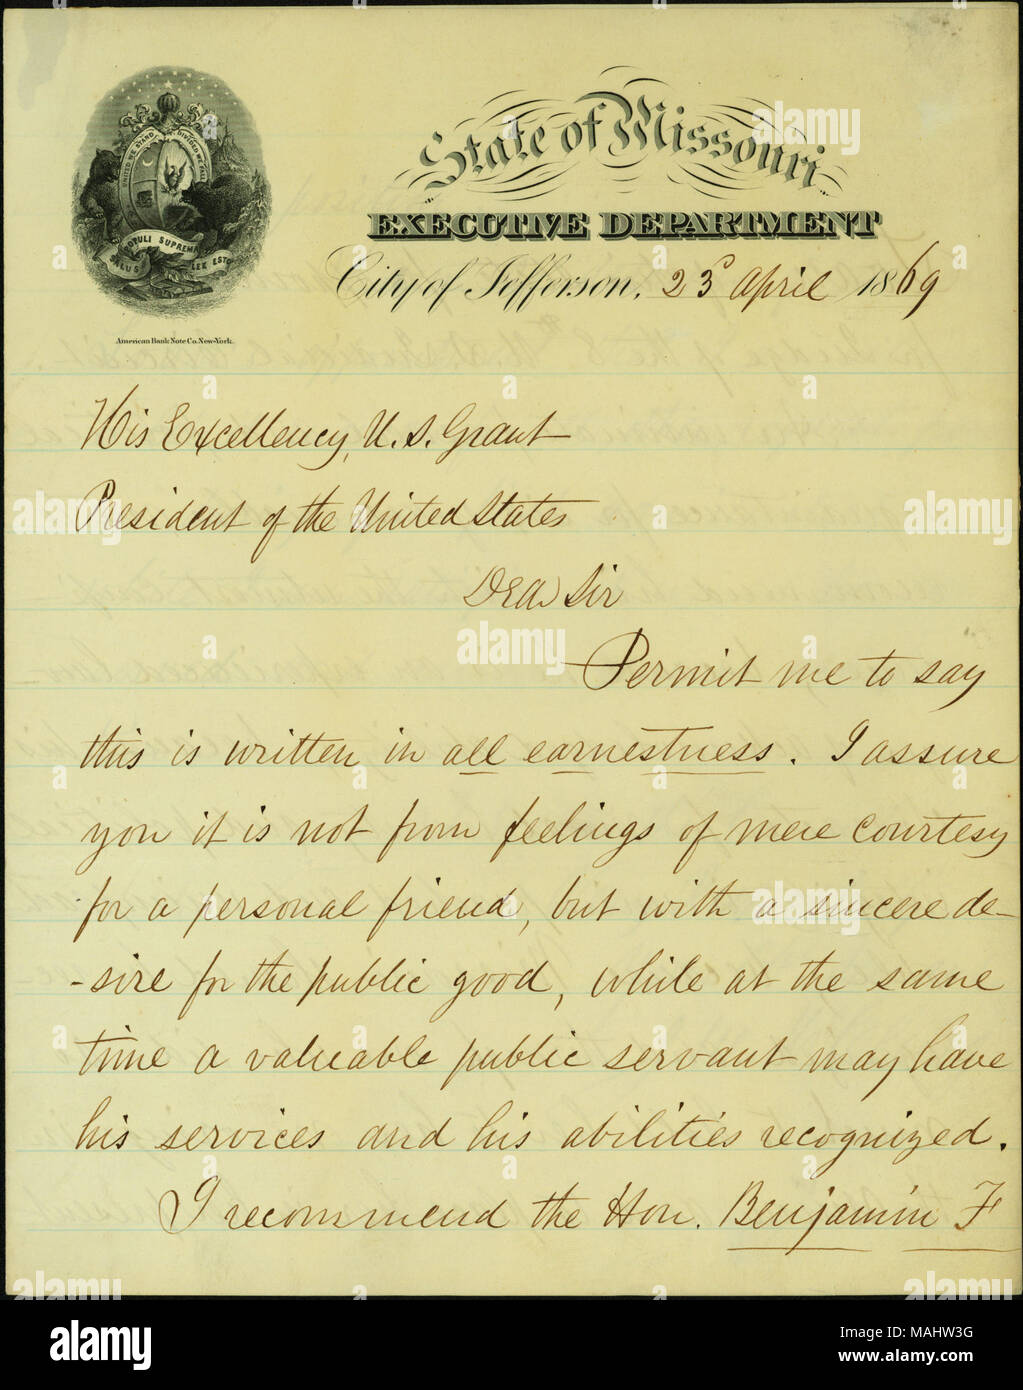 State of Missouri
EXECUTIVE DEPARTMENT
City of Jefferson, 23d April 1869
UNITED WE STAND DIVIDED WE FALL
POPULI SUPREMA
SALUS LEX ESTO
American Bank Note Co. New-York.
His Excellency, U. S. Grant
President of the United States
Dear Sir
Permit me to say
this is written in all earnestness. I assure
you it is not from feelings of mere courtesy
for a personal friend, but with a sincere de-
-sire for the public good, while at the same
time a valuable public servant may have
his services and his abilities recognized.
I recommend the Hon. Benjamin F
alamy
alamy
alamy
alamy
alamy
alamy
alamy
alamy
alamy
alamy
alamy
Image ID: MAHW3G
www.alamy.com